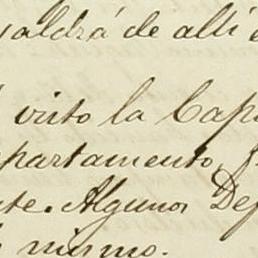 saldrá de alli e
visto la Cap
epartamento,
te. Algunos De
mismo.